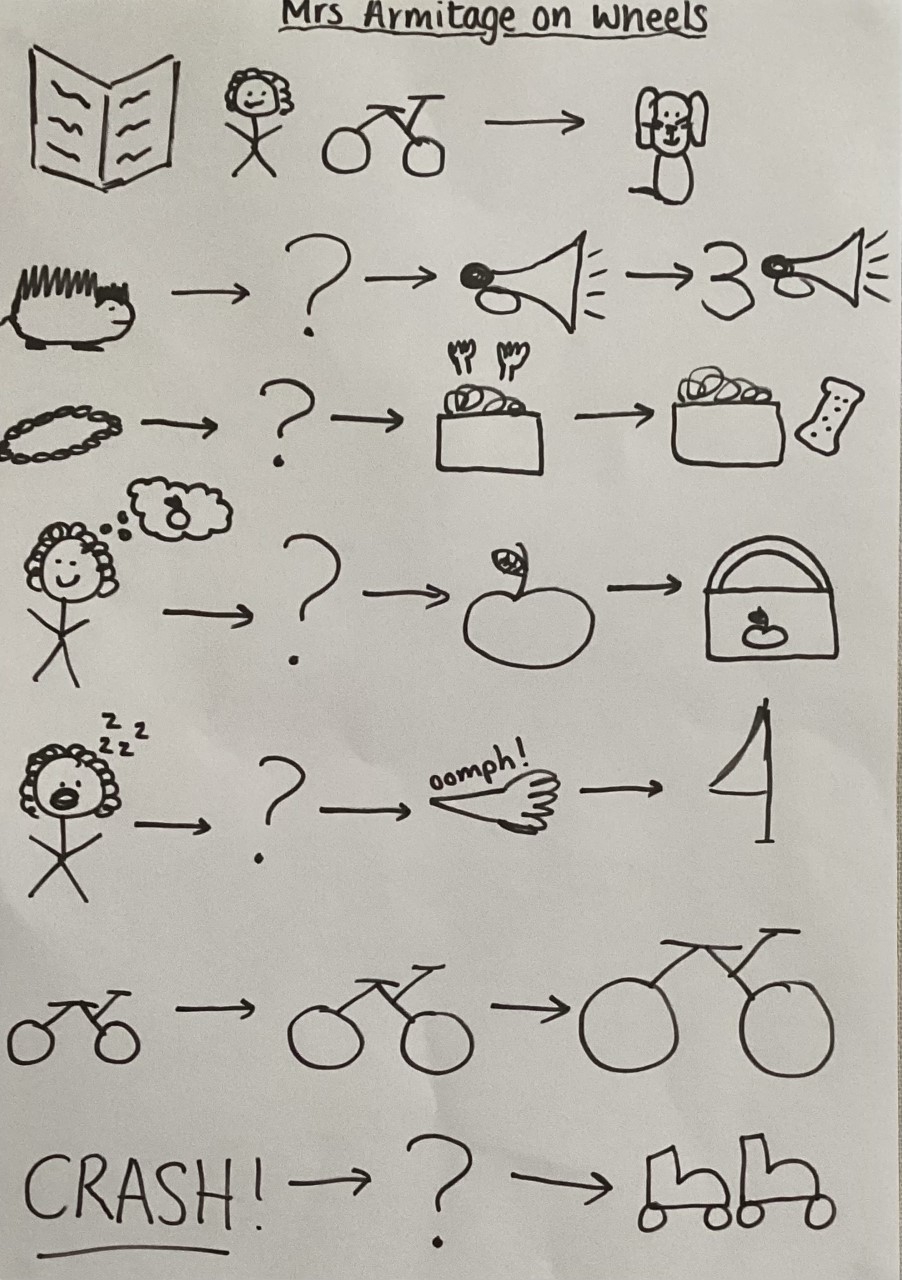 Mrs Armitage on Wheels
?
3
?
?
z z
z z
oomph!
?
CRASH! ?